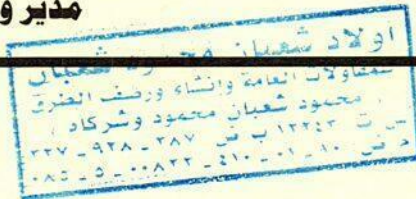 مدير و
اولاد شعبان محمود شعبان
للمقاولات العامة وإنشاء ورصف الطرق
محمود شعبان محمود وشركاه
س ت ١٢٢٤٣ ب ض ٣٨٧ - ٩٢٨ - ٢٢٧
م ض ١٠ - ٠١ - ٤١٠ - ٠٠٨٢٢ - ٥ - ٠٨٥